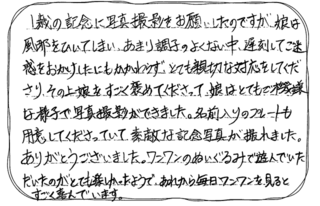 1歳の記念に写真撮影をお願いしたのですが、娘は
風邪をひいてしまい、あまり調子のよくない中、遅刻してご迷
惑をおかけしたにもかかわらず、とても親切な対応をしてくだ
さり、その上娘をすごく褒めてくださって、娘はとてもご機嫌
な様子で写真撮影ができました。名前入りのプレートも
用意してくださっていて、素敵な記念写真が撮れました。
ありがとうございました。ワンワンのぬいぐるみで遊んでいた
だいたのがとても楽しかったようで、あれから毎日ワンワンを見ると
すごく喜んでいます。